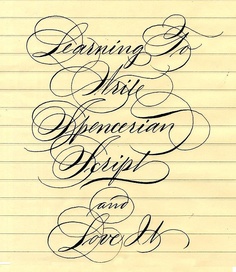 Learning To
Write
Spencerian
Script
and
Love It